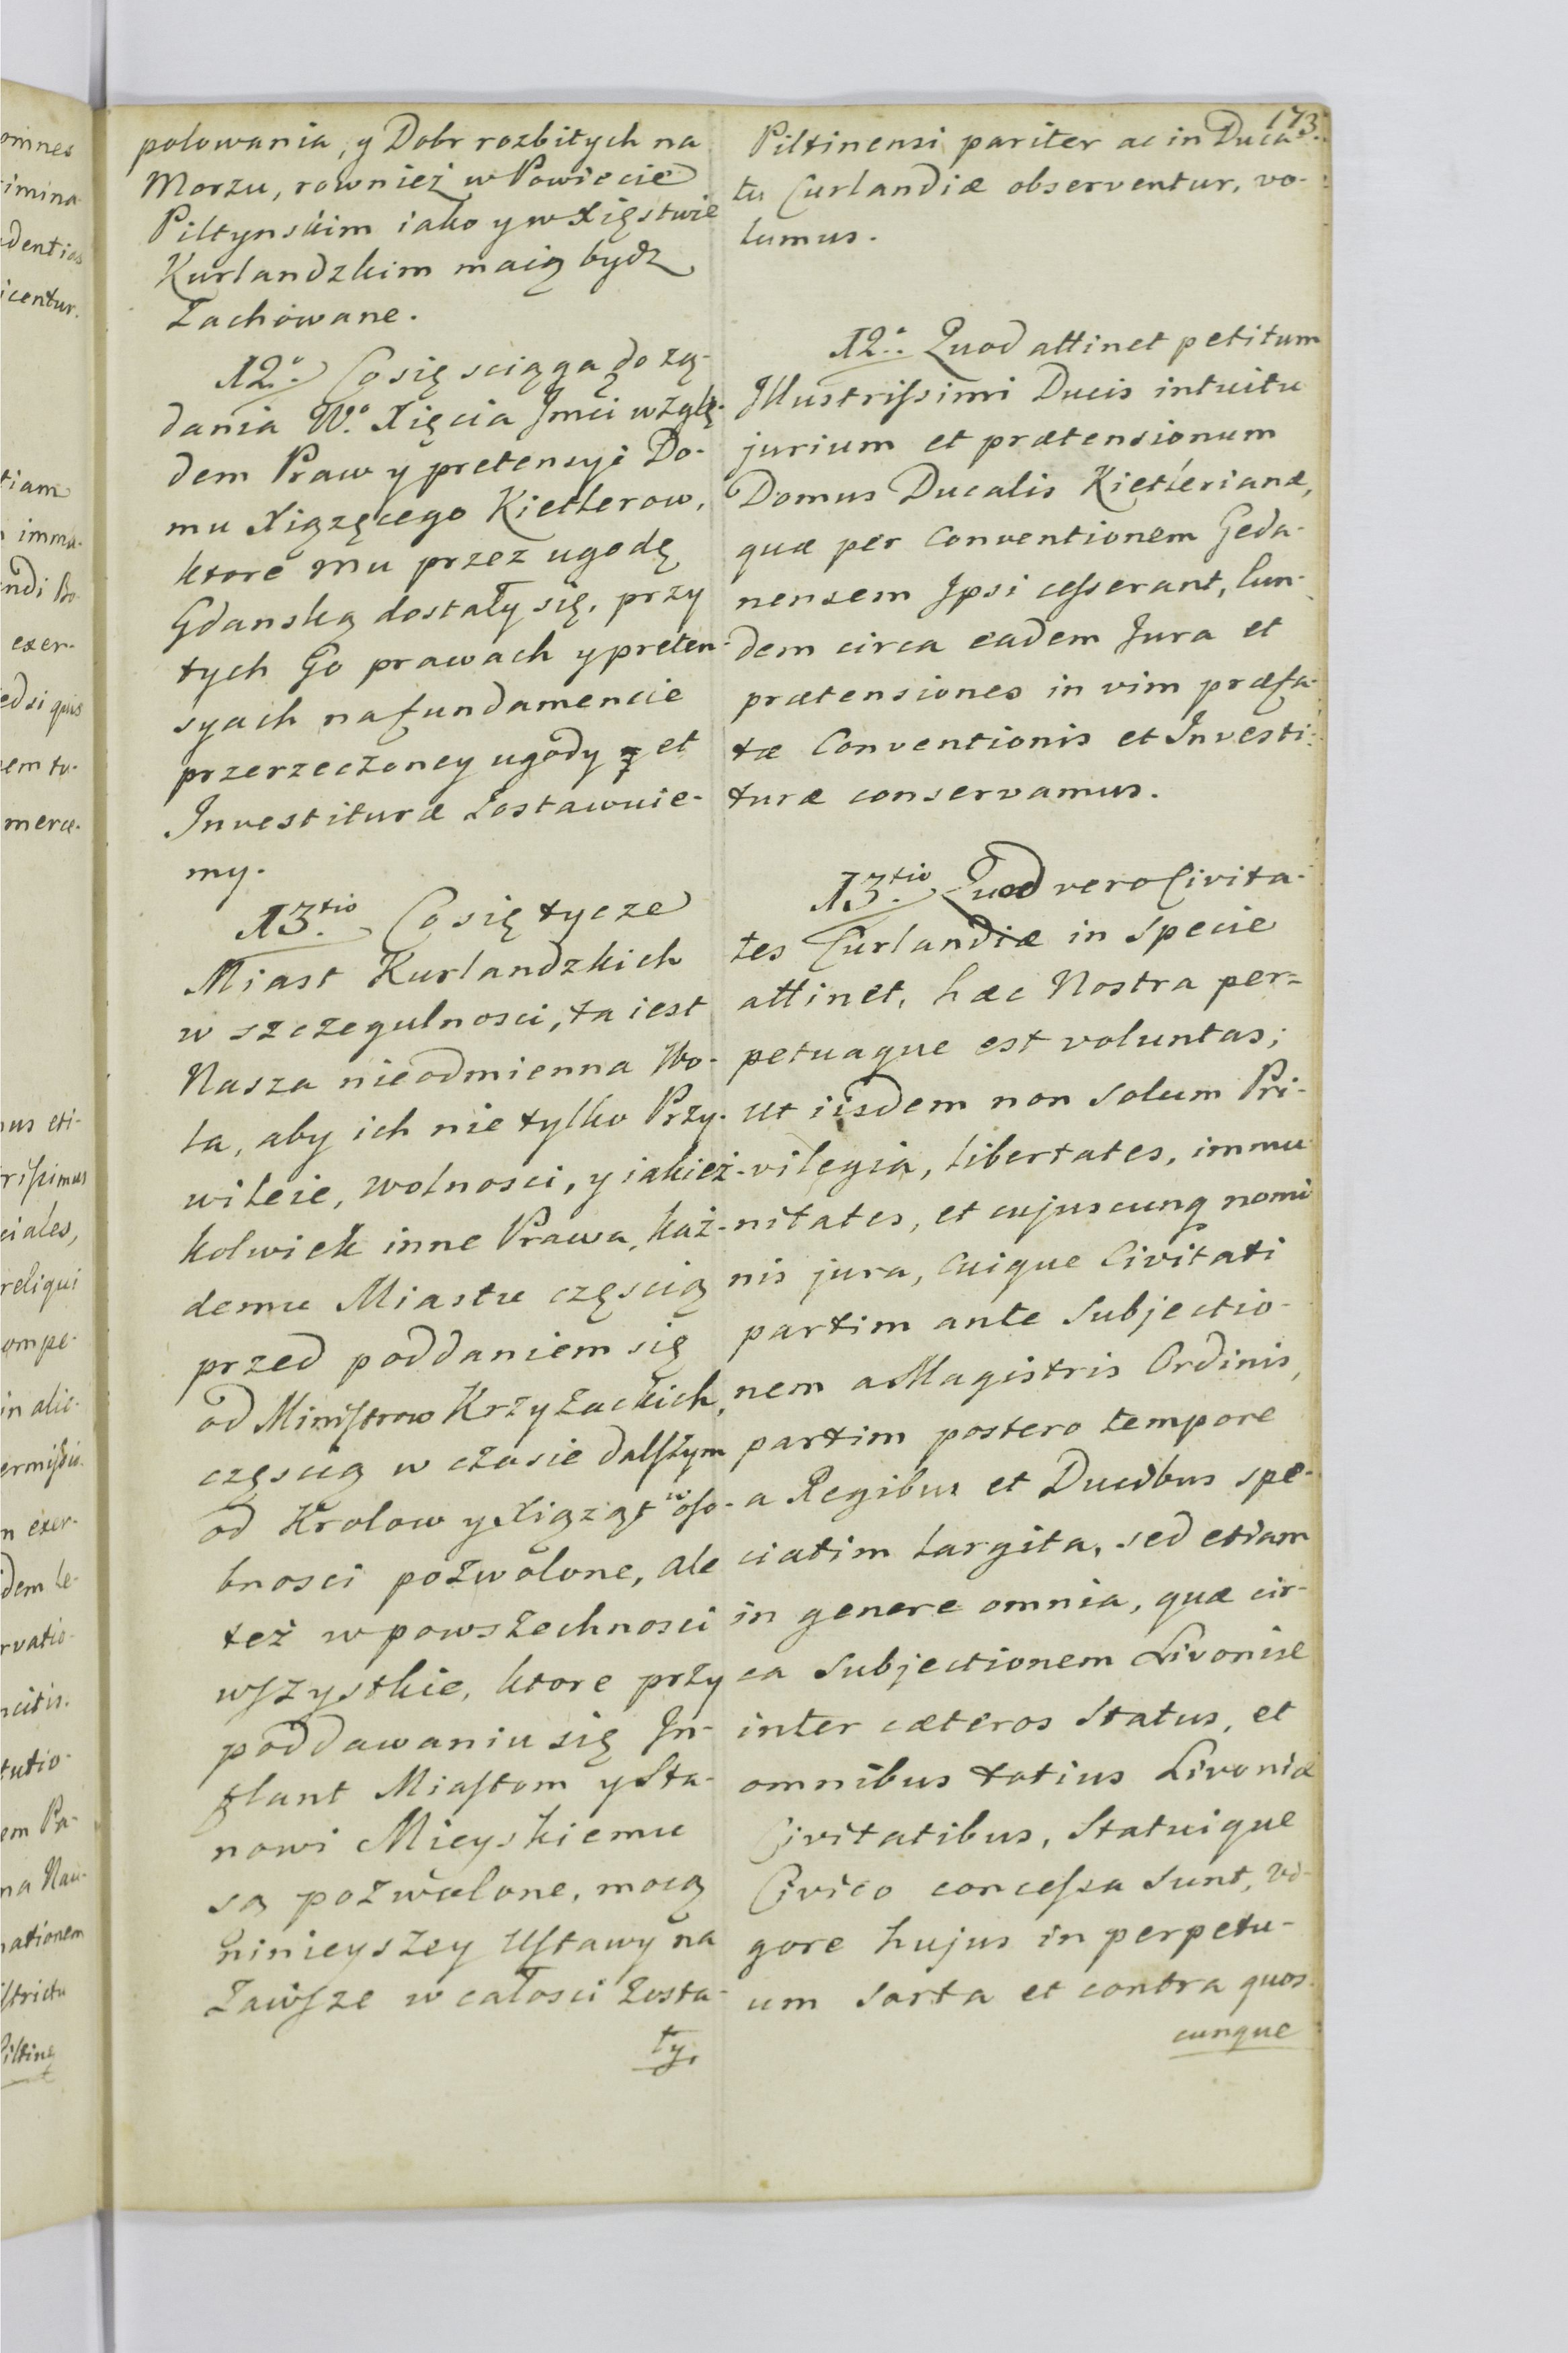 173.
polowania, y Dobr rozbitych na
Morzu, rownież w Powiecie
Piltynskim iako y w Xięstwie
Kurlandzkim maią bydz
Zachowane.
12º. Co się sciąga do zą-
dania Wº. Xięcia Jmci wzglę-
dem Praw y pretensyi Do-
mu Xiązęcego Kietlerow,
ktore mu przez ugodę
Gdanską dostały się, przy
tych Go prawach y preten-
syach na fundamencie
przerzeczoney ugody et
Investituræ Zostawuie-
my.
13.tio Co się tycze
Miast Kurlandzkich
w szczegulnosci, ta iest
Nasza nieodmienna Wo-
la, aby ich nie tylko Przy-
wileie, wolnosci, y iakież-
kolwiek inne Prawa, każ-
demu Miastu częscią
przed poddaniem się
od Ministrow Krzyżackich,
częscią w czasie dalszym
od Krolow y Xiąząt w oso-
bnosci pozwolone, ale
też w powszechnosci
wszystkie, ktore przy
poddawaniu się In-
flant Miastom y Sta-
nowi Mieyskiemu
są pozwolone, mocą
ninieyszey Ustawy na
Zawsze w całosci Zosta-
ły.
Piltinensi pariter ac in Duca-
tu Curlandiæ observentur, vo-
lumus.
12º. Quod attinet petitum
Illustrissimi Ducis intuitu
jurium et prætensionum
Domus Ducalis Kietlerianæ,
quæ per Conventionem Geda-
nensem Ipsi cesserant, Eun-
dem circa eadem Jura et
prætensiones in vim præfa-
tæ Conventionis et Investi-
turæ conservamus.
13.tio Quod vero Civita-
tes Curlandiæ in specie
attinet, hæc Nostra per-
petuaque est voluntas;
Ut iisdem non solum Pri-
vilegia, libertates, immu
nitates, et cujuscunq nomi
nis jura, cuique Civitati
partim ante Subjectio-
nem a Magistris Ordinis,
partim postero tempore
a Regibus et Ducibus spe-
ciatim largita, sed etiam
in genere omnia, quæ cir-
ca Subjectionem Livoniæ
inter cæteros Status, et
omnibus totius Livoniæ
Civitatibus, Statuique
Civico concessa sunt, vi-
gore hujus in perpetu-
um sarta et contra quos
cunque